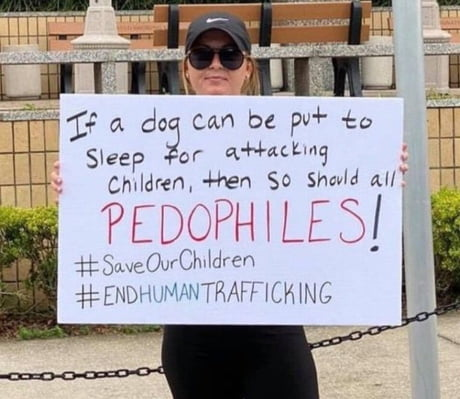 If a dog can be put to
Sleep for attacking
Children, then So Should all
PEDOPHILES!
#SaveOurChildren
#ENDHUMANTRAFFICKING